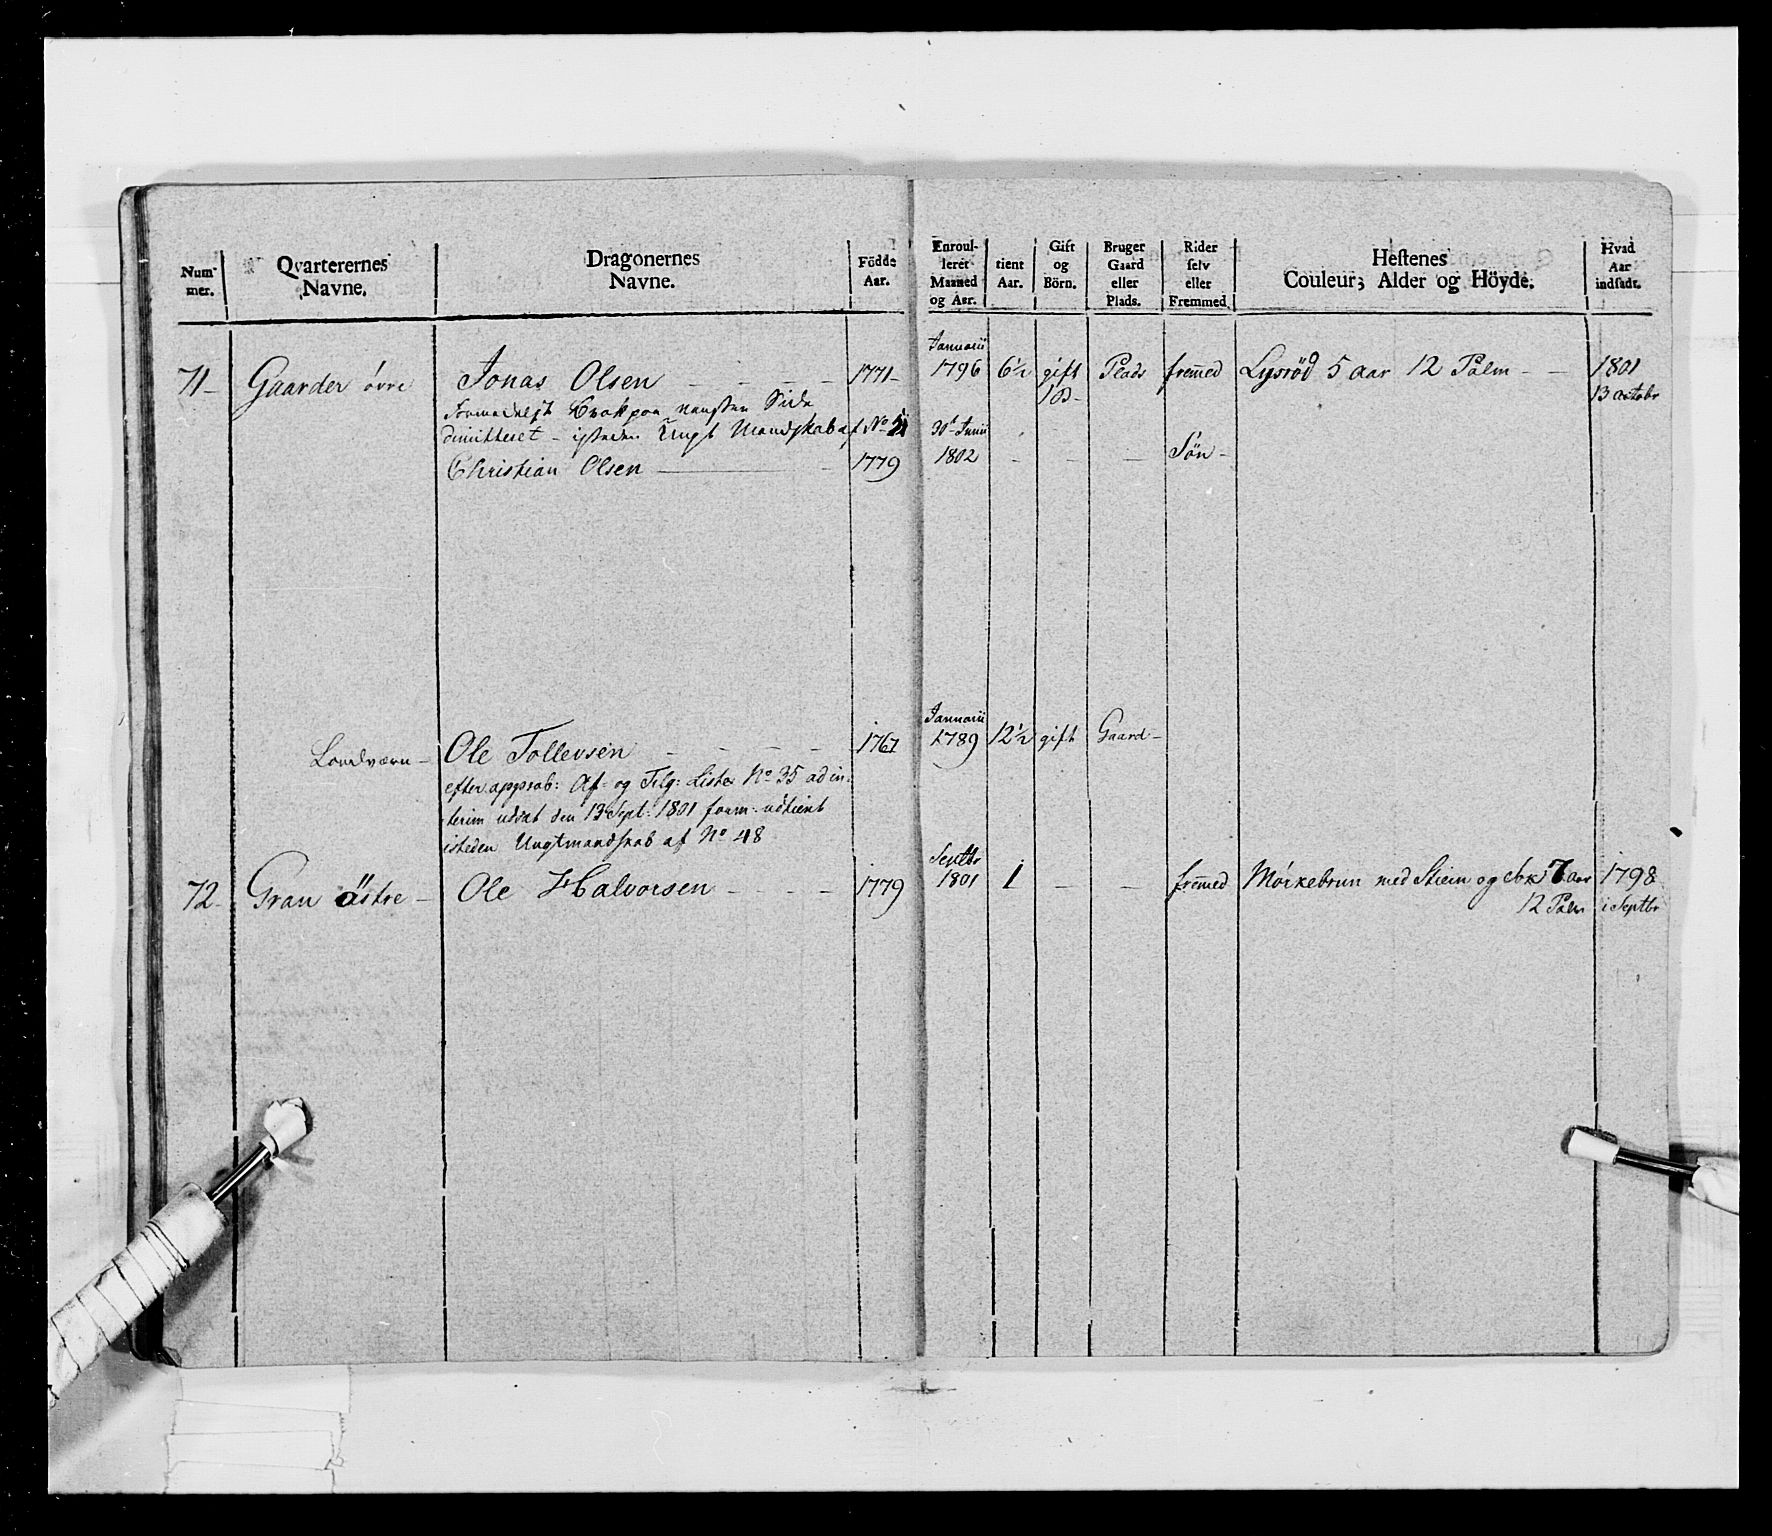 Num- mer. Qvarterernes Navne. Dragonernes Navne. Födde Aar. Enroul- leret Maaned og Aar. tient Aar. Gift og Börn. Bruger Gaard eller Plads. Rider selv eller Fremmed Hestenes Couleur, Alder og Höyde. Hvad Aar indsadt.
Januarii
71 - Gaarder övre Jonas Olsen - - - - 1771 - 1796 6½ gift Plads fremed Lysröd 5 aar 12 Palm - - 1801
1 B - 13 octobr
formedelst Brok paa venstre Side
dimitteret - isteden Ungt Mandskab af No 30t Junii
Christian Olsen - 1779 1802 - - - Sön -
Januarii
Landværn - Ole Tollevsen - - - - 1767 1789 12½ gift Gaard -
efter approb: Af- og Tilg: Liste No 35 ad in-
terim udsat den 13 Sept: 1801 form: udtient
isteden Ungtmandskab af No 48
Septbr
72 - Gran östre - Ole Halvorsen - - - - 1779 1801 1 - - fremed Mörkebrun med Stiern og 7 aar 1798
12 Palm i Septbr